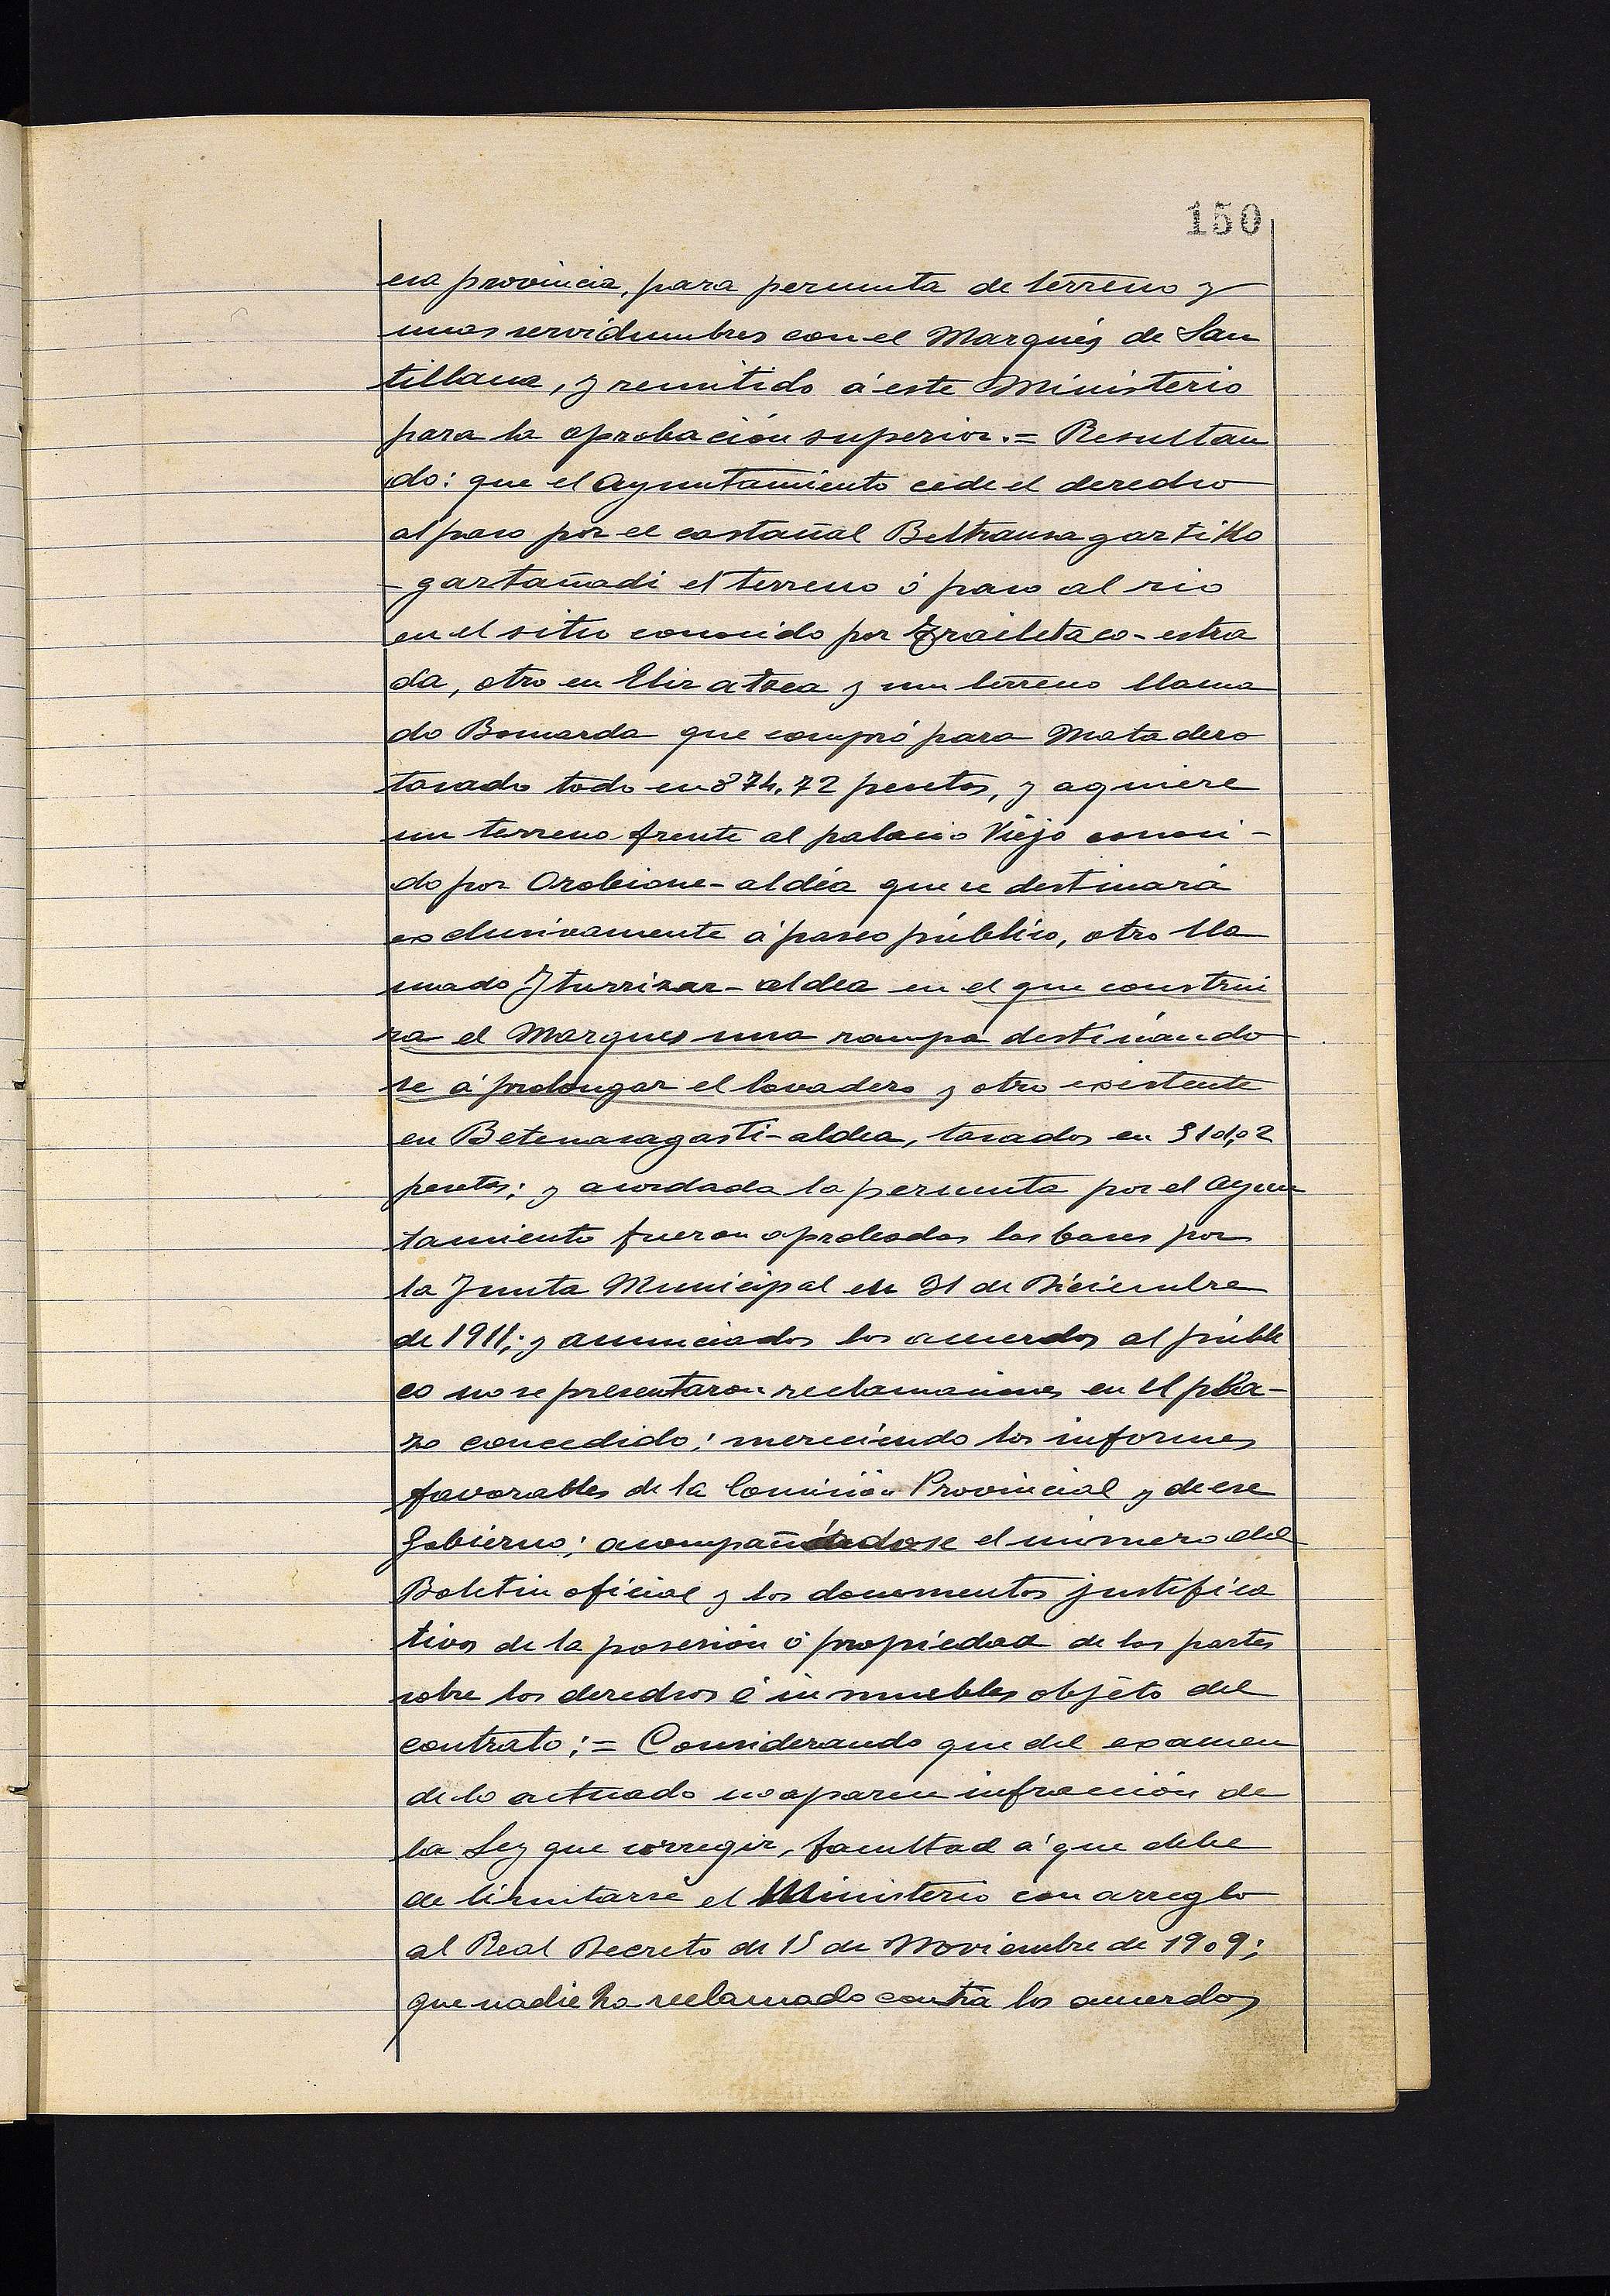 150
esa provincia, para permuta de terreno y
unas servidumbres con el Marqués de San
tillana, y remitido á este Ministerio
para la aprobación superior.= Resultan
do: que el Ayuntamiento cede el derecho
al paso por el castañal Beltransagartillo
-gartañadi el terreno ó paso al rio
en el sitio conocido por Frailetaco-estra
da, otro en Elizatxea y un terreno llama
do Bomarda que compró para Matadero
tasado todo en 874,72 pesetas, y aquiere
un terreno frente al palacio Viejo conoci-
do por Orobione-aldéa que se destinará
exclusivamente á paseo público, otro lla
mado Iturrizar-aldea en el que construi
ra el Marques una rampa destinándo
se á prolongar el lavadero y otro existente
en Betenasagasti-aldea, tasados en
pesetas; y acordada la permuta por el Ayun
tamiento fueron aprobadas las bases por
la Junta Municipal en 31 de Diciembre
de 1911; y anunciados los acuerdos al públi
co no se presentaron reclamaciones en el pla-
zo concedido; mereciendo los informes
favorables de la Comisión Provincial y de ese
Gobierno; acompañándose el número del
Boletin oficial y los documentos justifica
tivos de la posesión ó propiedad de las partes
sobre los derechos é inmuebles objeto del
contrato;= Considerando que del examen
de lo actuado no aparece infracción de
la Ley que corregir, facultad á que debe
de limitarse el Ministerio con arreglo
al Real Decreto de 15 de Noviembre de 1909;
que nadie ha reclamado contra los acuerdos